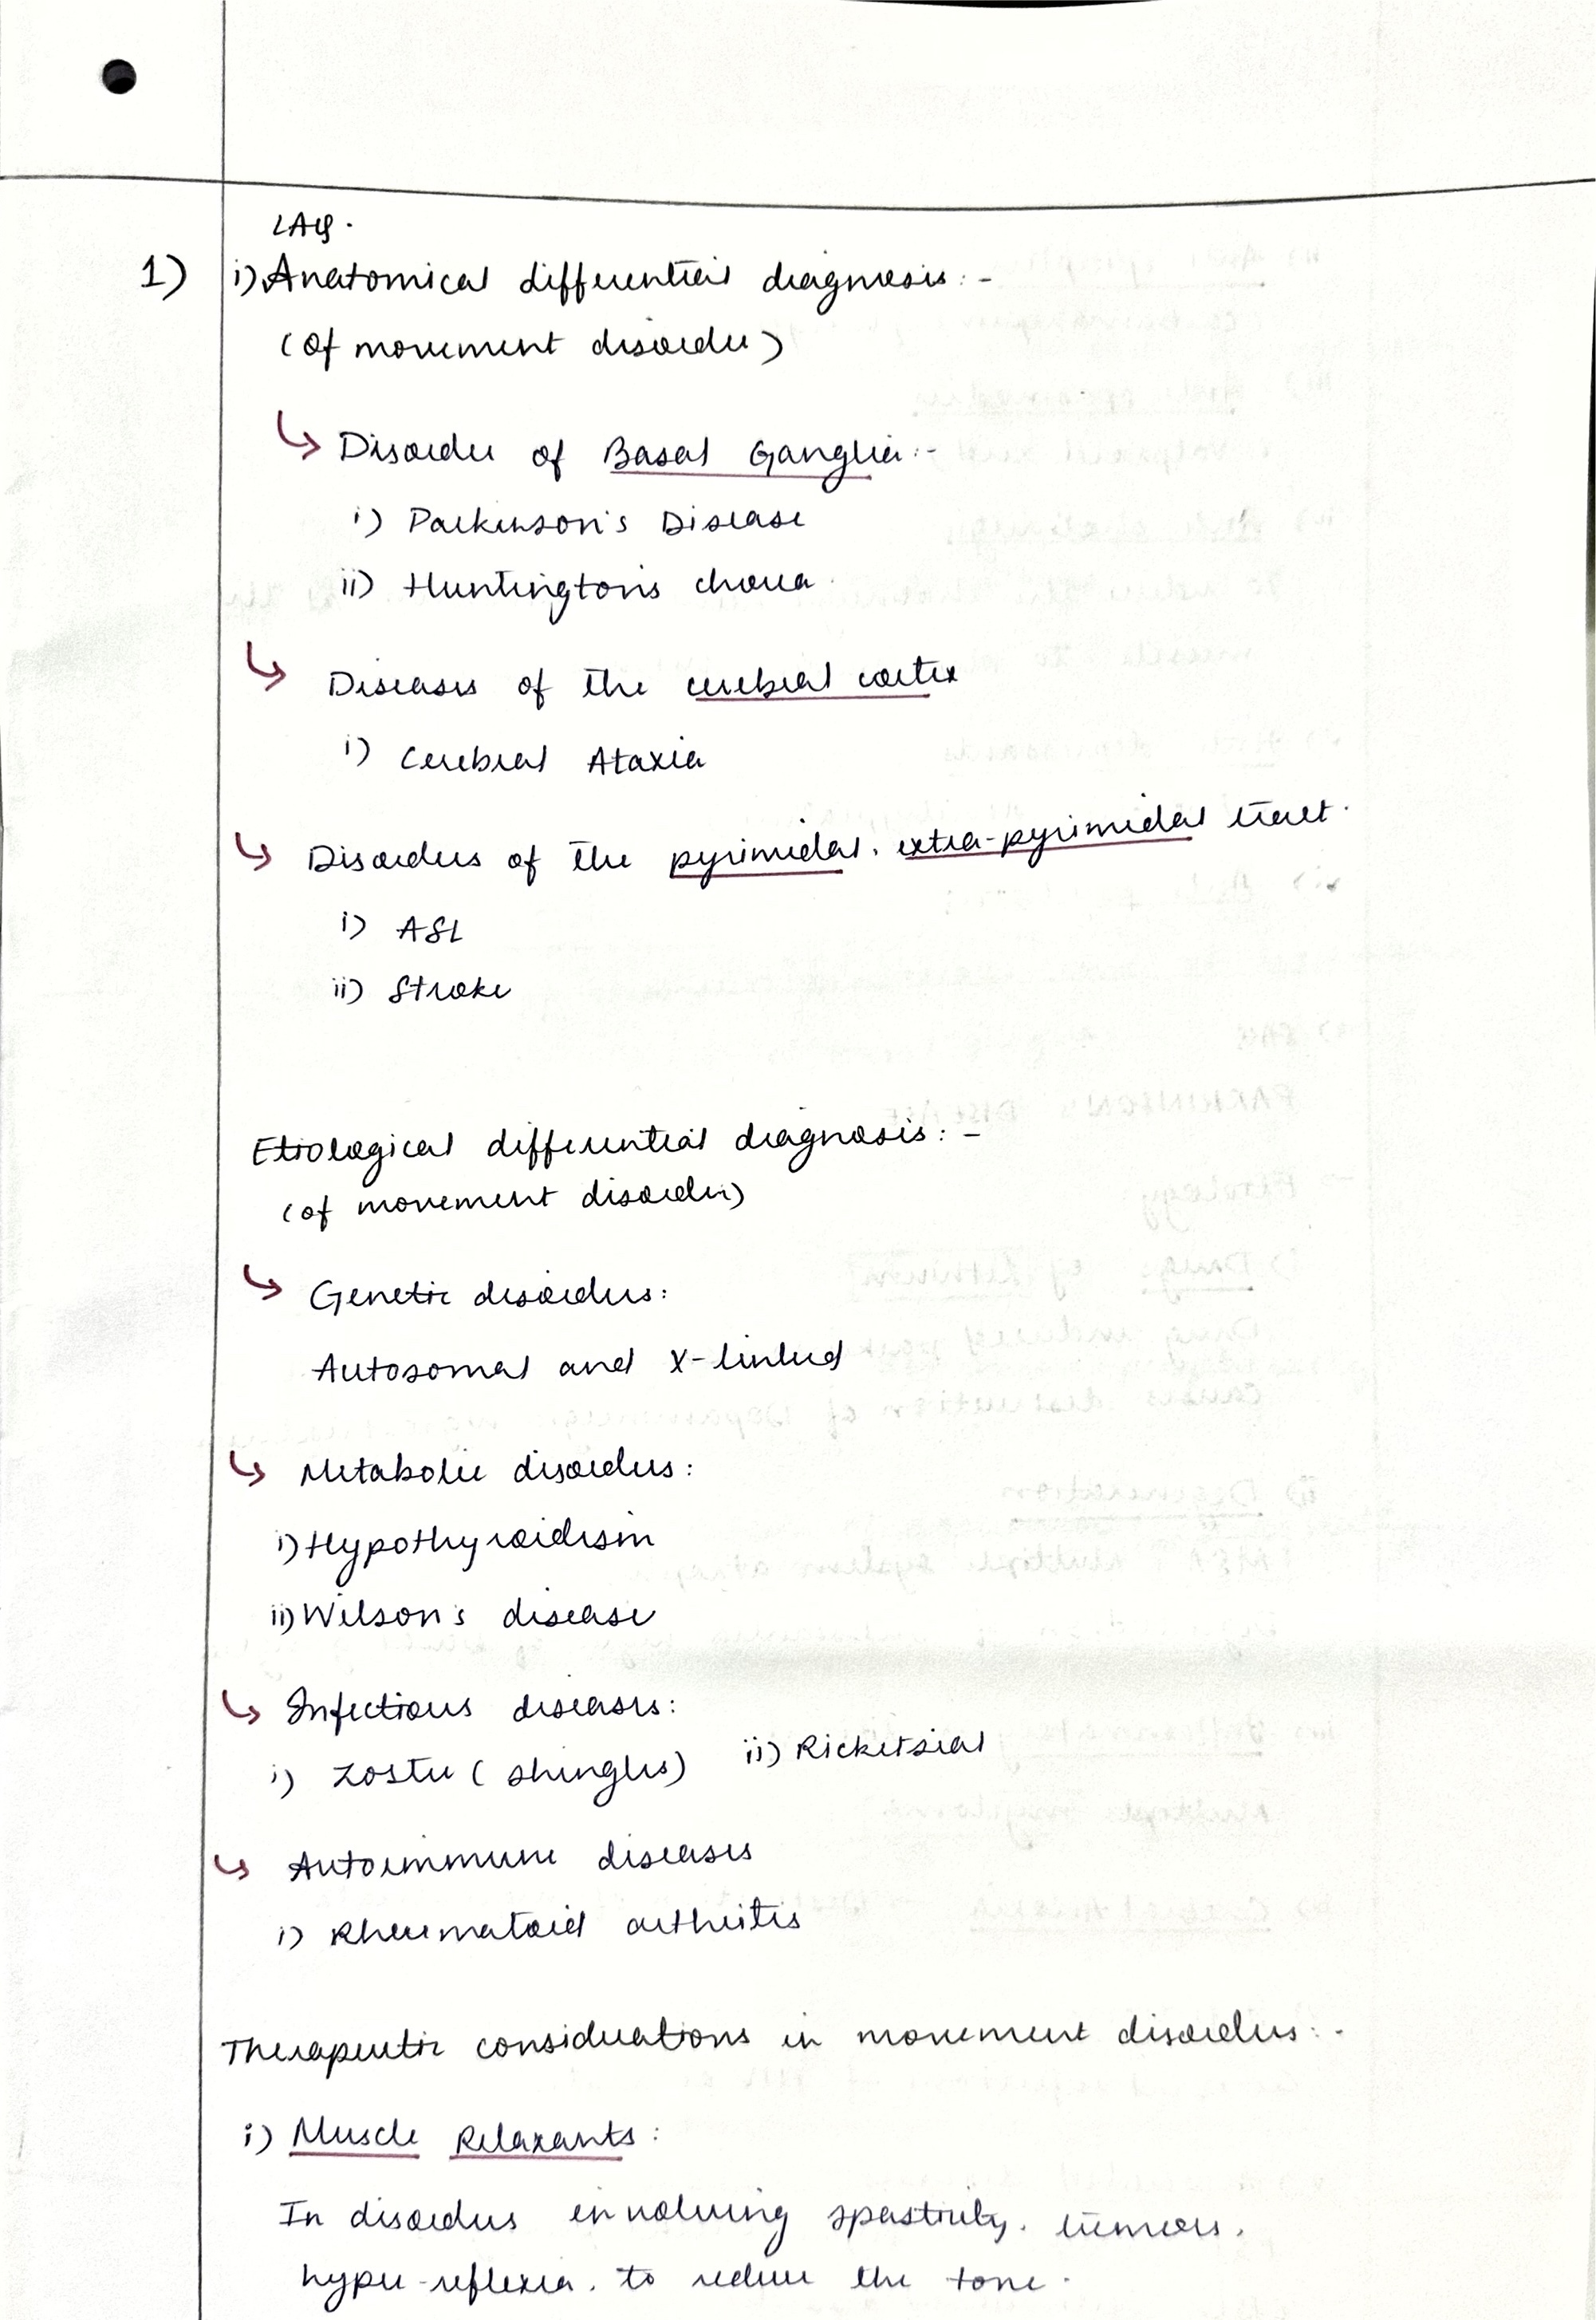 LAQ.
1) i) Anatomical differential diagnosis:-
(Of movement disorder)
↳ Disorder of Basal Ganglia:-
i) Parkinson's Disease
ii) Huntington's chorea.
↳ Diseases of the cerebral cortex
i) Cerebral Ataxia
↳ Disorders of the pyrimidal, extra-pyrimidal tract.
i) ASL
ii) Stroke
Etiological differential diagnosis:-
(of movement disorder)
↳ Genetic disorders:
Autosomal and X-linked
↳ Metabolic disorders:
i) Hypothyroidism
ii) Wilson's disease
↳ Infectious diseases:
i) Zoster (shingles) ii) Ricketsial
↳ Autoimmune diseases
i) Rheumatoid arthritis
Therapeutic considerations in movement disorders:-
i) Muscle Relaxants:
In disorders involving spasticity, tumors,
hyper-reflexia, to reduce the tone.